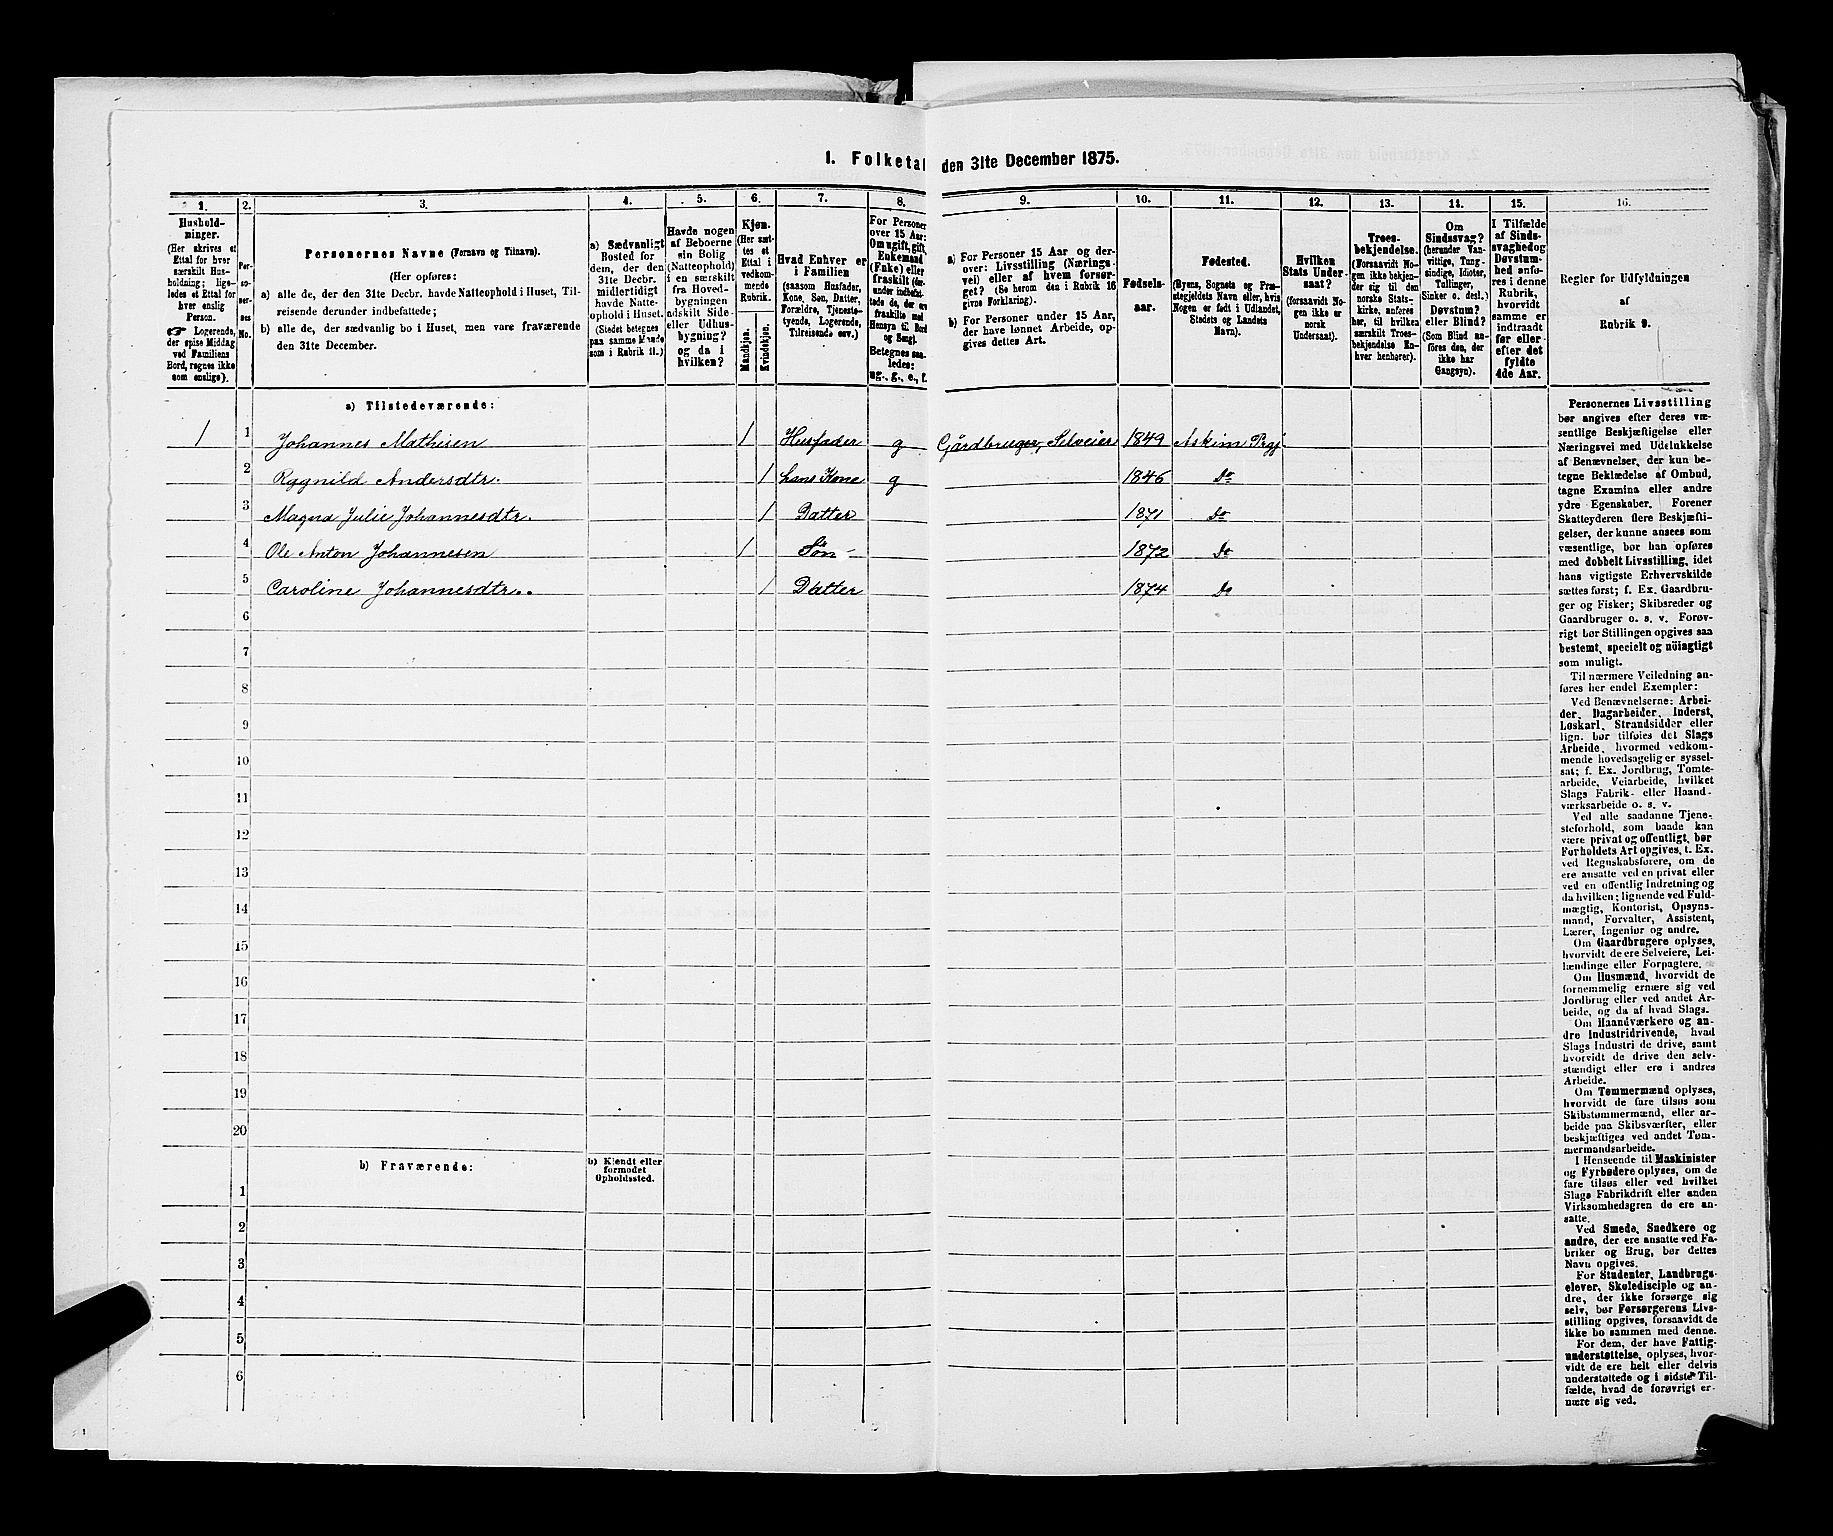 1. Folketal den 31te December 1875.
1. 2. 3. 4. 5. 6. 7. 8. 9. 10. 11. 12. 13. 14. 15. 16.
Hushold-
ninger.
(Her skrives et
Ettal for hver
særskilt Hus-
holdning; lige-
ledes et Ettal for
hver enslig
Person.
☛ Logerende,
der spise Middag
ved Familiens
Bord, regnes ikke
som enslige).
Per-
so-
ner-
nes
No.
Personernes Navne (Fornavn og Tilnavn).
(Her opføres:
a) alle de, der den 31te Decbr. havde Natteophold i Huset, Til-
reisende derunder indbefattede;
b) alle de, der sædvanlig bo i Huset, men vare fraværende
den 31te December.
a) Sædvanligt
Bosted for
dem, der den
31te Decbr.
midlertidigt
havde Natte-
ophold i Huset.
(Stedet betegnes
paa samme Maade
som i Rubrik 11.)
Havde nogen
af Beboerne
sin Bolig
(Natteophold)
i en særskilt
fra Hoved-
bygningen
adskilt Side-
eller Udhus-
bygning?
og da i
hvilken?
Kjøn.
(Her sæt-
tes et
Ettal i
vedkom-
mende
Rubrik.
Mandkjøn.
Kvindekjøn.
Hvad Enhver er
i Familien
(saasom Husfader,
Kone, Søn, Datter,
Forældre, Tjeneste-
tyende, Logerende,
Tilreisende osv.)
For Personer
over 15 Aar:
Om ugift, gift,
Enkemand
(Enke) eller
fraskilt
Betegnes saa-
ledes:
ug., g., e., f.
a) For Personer 15 Aar og der-
over: Livsstilling (Nærings-
vei) eller af hvem forsør-
get? (Se herom den i Rubrik 16
givne Forklaring).
b) For Personer under 15 Aar,
der have lønnet Arbeide, op-
gives dettes Art.
Fødsels-
aar.
Fødested.
(Byens, Sognets og Præ-
stegjeldets Navn eller, hvis
Nogen er født i Udlandet,
Stedets og Landets
Navn).
Hvilken
Stats Under-
saat?
(forsaavidt No-
gen ikke er
norsk
Undersaat).
Troes-
bekjendelse.
(Forsaavidt No-
gen ikke bekjen-
der sig til den
norske Stats-
kirke, anføres
her, til hvilken
særskilt Troes-
bekjendelse En-
hver henhører).
Om
Sindssvag?
(herunder Van-
vittige, Tung-
sindige, Idioter,
Tullinger,
Sinker o. desl.)
Døvstum?
eller Blind?
(Som Blind an-
føres den, der
ikke har
Gangsyn).
I Tilfælde
af Sinds-
svaghed og
Døvstum-
hed anfø-
res i denne
Rubrik,
hvorvidt
samme er
indtraadt
før eller
efter det
fyldte
4de Aar.
Regler for Udfyldningen
af
Rubrik 9.
a) Tilstedeværende:
1 1 Johannes Mathisen 1 Husfader g Gårdbruger, Selveier 1849 Askim Prgj.
2 Ragnild Andersdtr. 1 hans Kone g 1846 Do
3 Magna Julie Johannesdtr. 1 Datter 1871 Do
4 Ole Anton Johannesen 1 Søn 1872 Do
5 Caroline Johannesdtr. 1 Datter 1874 Do
6
7
8
9
10
11
12
13
14
15
16
17
18
19
20
b) Fraværende:
b) Kjendt eller
formodet
Opholdssted.
1
2
3
4
5
6
Personernes Livsstilling
bør angives efter deres væ-
sentlige Beskjæftigelse eller
Næringsvei med Udelukkelse
af Benævnelser, der kun be-
tegne Beklædelse af Ombud,
tagne Examina eller andre
ydre Egenskaber. Forener
Skatteyderen flere Beskjæfti-
gelser, der kunne ansees som
væsentlige, bør han opføres
med dobbelt Livsstilling, idet
hans vigtigste Erhvervskilde
sættes først; f. Ex. Gaardbru-
ger og Fisker; Skibsreder og
Gaardbruger o. s. v. Forøv-
rigt bør Stillingen opgives saa
bestemt, specielt og nöiagtigt
som muligt.
Til nærmere Veiledning an-
føres her endel Exempler:
Ved Benævnelserne: Arbei-
der, Dagarbeider, Inderst,
Løskarl, Strandsidder eller
lign. bør tilføies det Slags
Arbeide, hvormed vedkom-
mende hovedsagelig er syssel-
sat; f. Ex. Jordbrug, Tomte-
arbeide, Veiarbeide, hvilket
Slags Fabrik- eller Haand-
værksarbeide o. s. v.
Ved alle saadanne Tjene-
steforhold, som baade kan
være privat og offentligt, bør
Forholdets Art opgives, t. Ex.
ved Regnskabsførere, om de
ere ansatte ved en privat eller
ved en offentlig Indretning og
da hvilken; lignende ved Fuld-
mægtig, Kontorist, Opsyns-
mand, Forvalter, Assistent,
Lærer, Ingeniør og andre.
Om Gaardbrugere oplyses,
hvorvidt de ere Selveiere, Lei-
lændinge eller Forpagtere.
Om Husmænd, hvorvidt de
fornemmelig ernære sig ved
Jordbrug eller ved andet Ar-
beide, og da af hvad Slags.
Om Haandværkere og an-
dre Industridrivende, hvad
Slags Industri de drive, samt
hvorvidt de drive den selv-
stændigt eller ere i andres
Arbeide.
Om Tømmermænd oplyses,
hvorvidt de fare tilsøs som
Skibstømmermænd, eller ar-
beide paa Skibsværfter, eller
beskjæftiges ved andet Tøm-
mermandsarbeide.
I Henseende til Maskinister
og Fyrbødere oplyses, om de
fare tilsøs eller ved hvilket
Slags Fabrikdrift eller anden
Virksomhedsgren de ere an-
satte.
Ved Smede, Snedkere og
andre, der ere ansatte ved Fa-
briker og Brug, bør dettes
Navn opgives.
For Studenter, Landbrugs-
elever, Skoledisciple og an-
dre, der ikke forsørge sig
selv, bør Forsørgerens Livs-
stilling opgives, forsaavidt de
ikke bo sammen med denne.
For dem, der have Fattig-
understøttelse, oplyses, hvor-
vidt de ere helt eller delvis
understøttede og i sidste Til-
fælde, hvad de forøvrigt er-
nære sig ved.